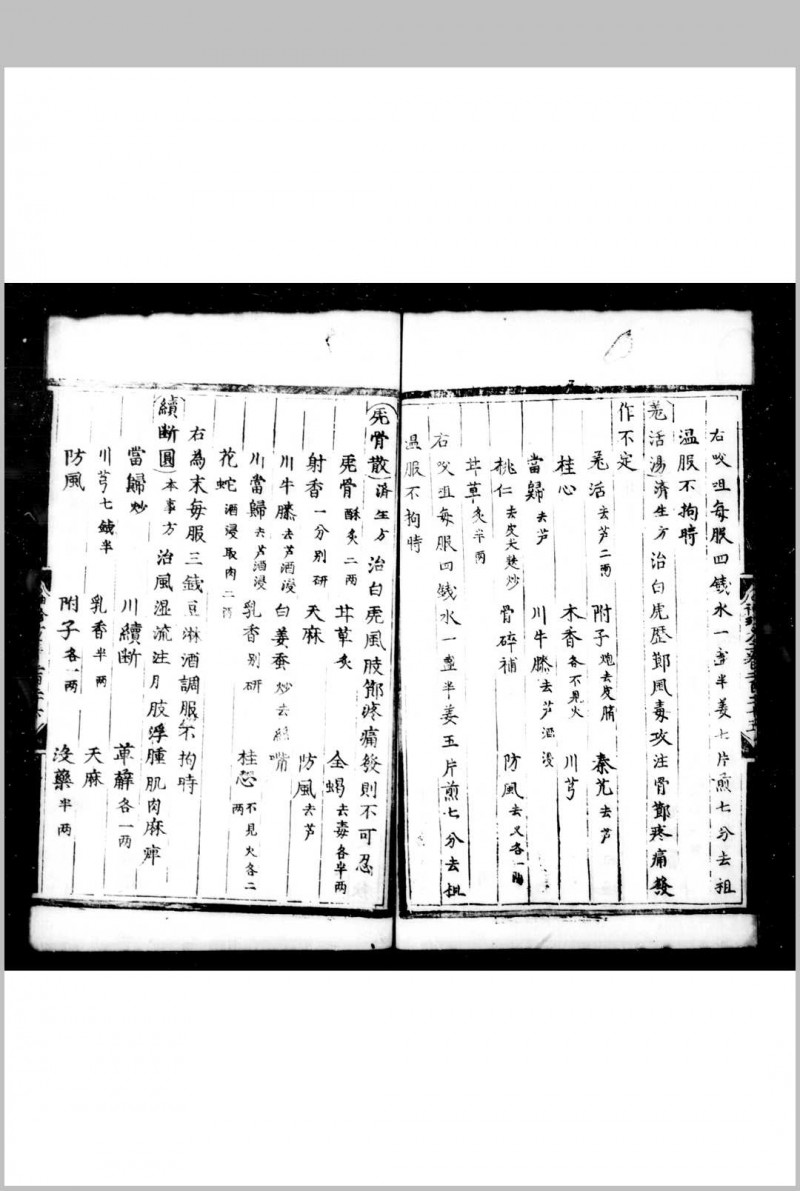 右㕮咀每服四錢水一盞半姜七片煎七分去柤
温服不拘時
羗活湯濟生方治白虎歷節風毒攻注骨節疼痛發
作不定
羗活去芦二两 附子炮去皮臍 秦艽去芦
桂心 木香各不見火 川芎
當歸去芦 川牛膝去芦酒浸
桃仁去皮尖麩炒 骨碎補 防風去义各一两
甘草炙半两
右㕮咀每服四錢水一盞半姜五片煎七分去柤
温服不拘時
虎骨散濟生方 治白虎風肢節疼痛發則不可忍
虎骨酥炙二两 甘草炙 全蝎去毒各半两
射香一分别研 天麻 防風去芦
川牛膝去芦酒浸 白姜蚕炒去絲嘴
川當歸去芦酒浸 乳香别研 桂心不見火各二两
花蛇酒浸取肉二两
右為末每服三錢豆淋酒調服不拘時
續断圓本事方 治風湿流注月肢浮腫肌肉麻痺
當歸炒 川續断 萆薢各一两
川芎七錢半 乳香半两 天麻
防風 附子各一两 没藥半两